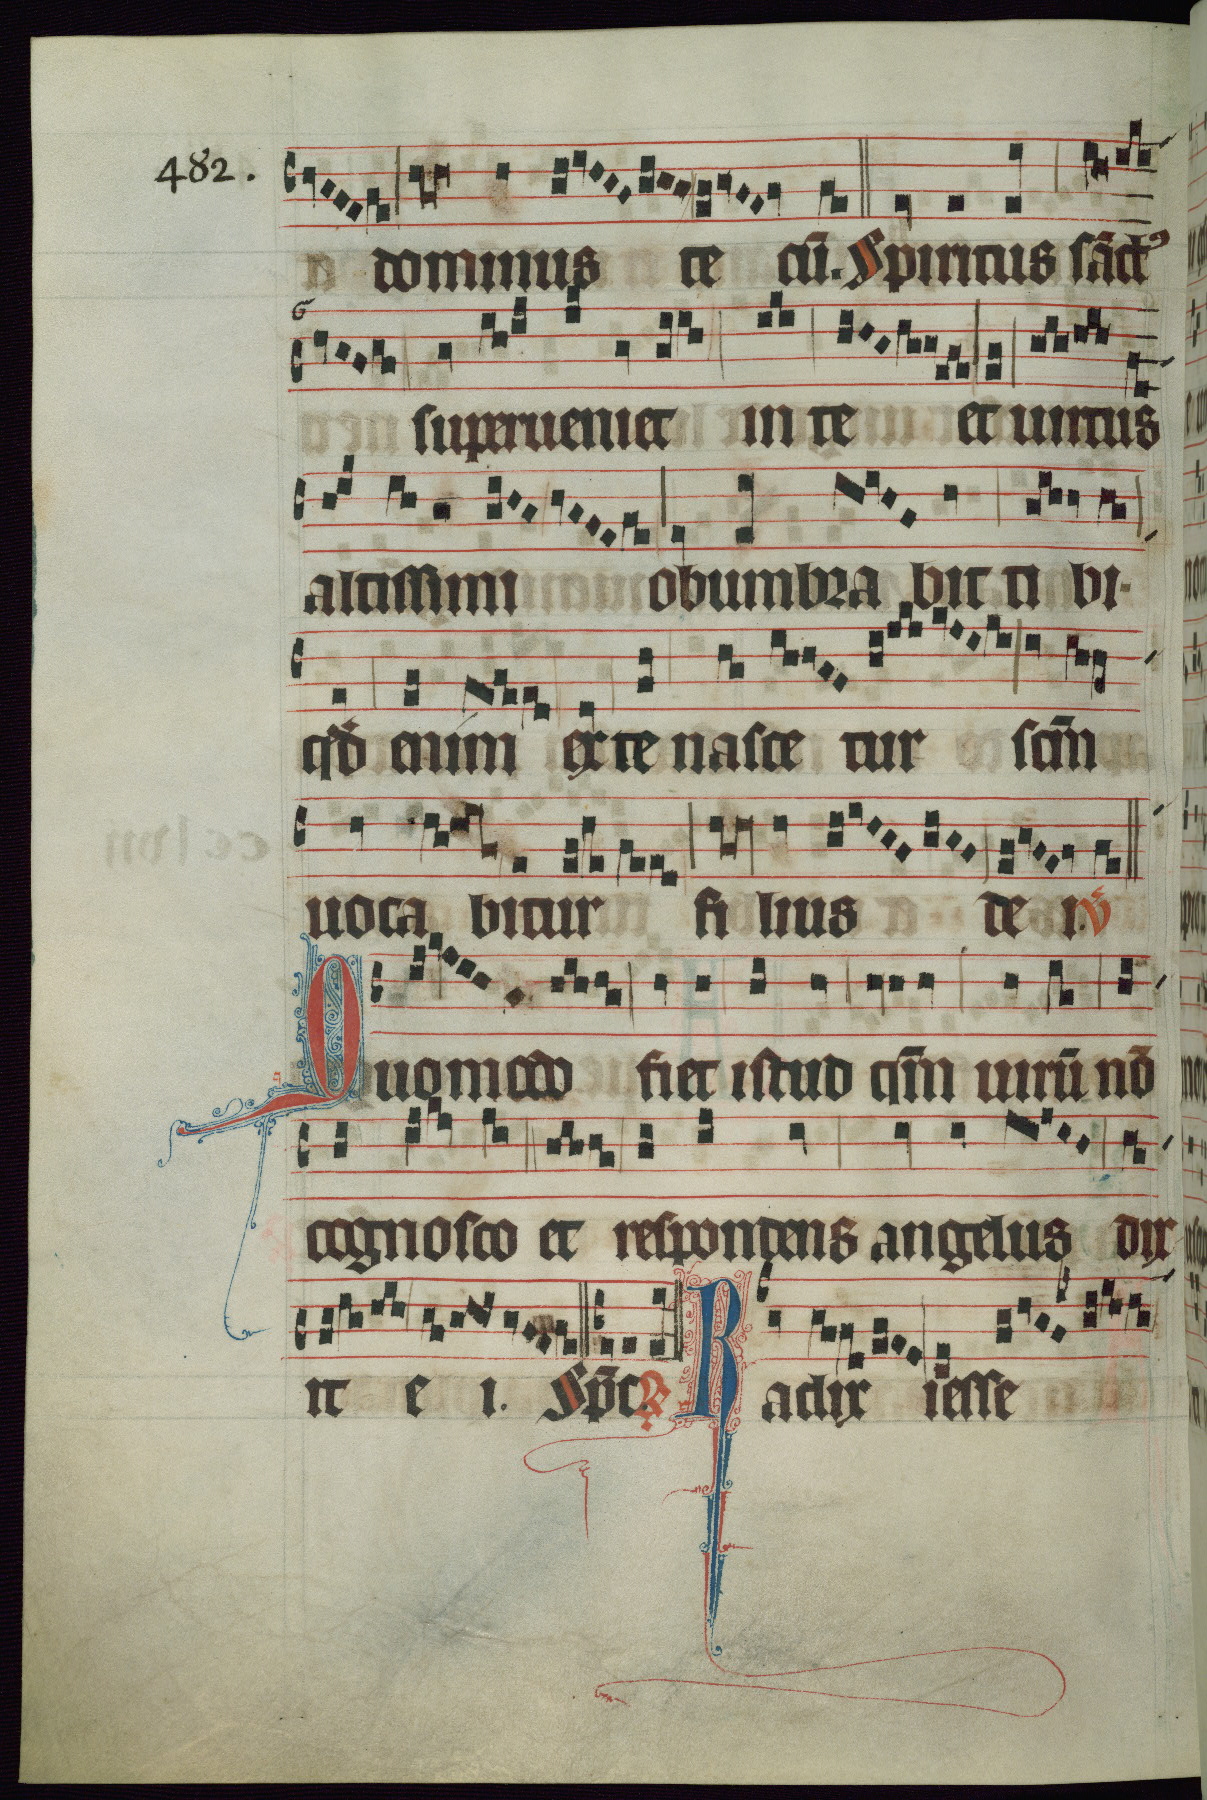 482.
a dominus te cū. Spiritus sāctꝰ
superueniet in te et uirtus
altissimi obumbra bit ti bi·
qd̄ enim ex te nasce tur scm̄
uoca bitur fi lius de i. v̄
Quomodo fiet istud qm̄ uirū nō
cognosco et respondens angelus dix
it e i. Sp̄c. ℟ Radix iesse